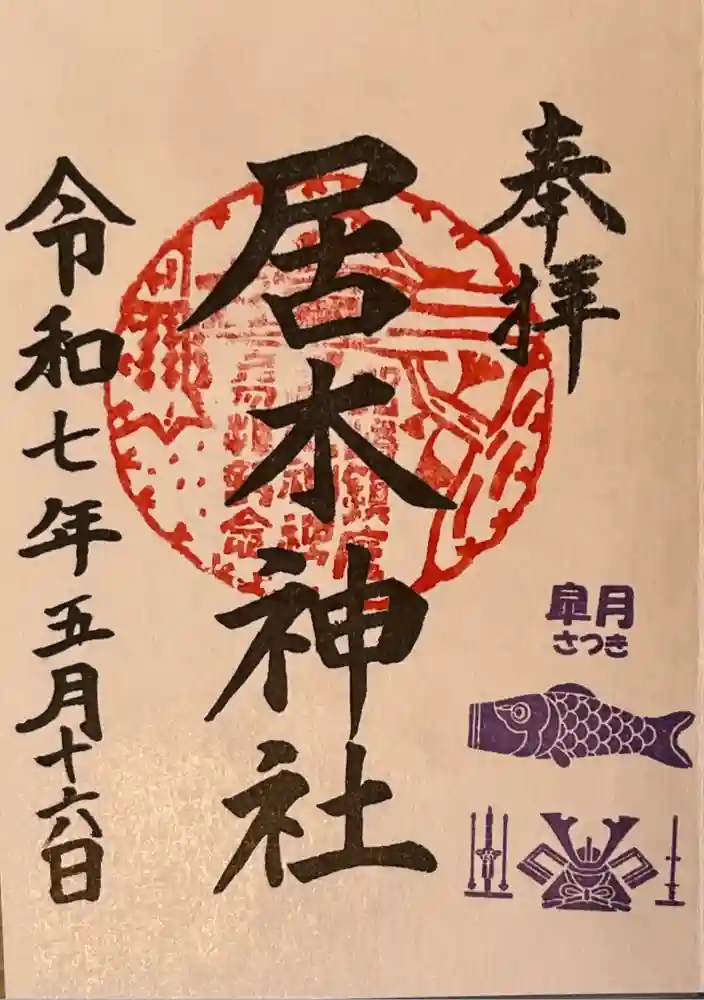 奉拝
皐月
さつき
居木神社
令和七年五月十六日